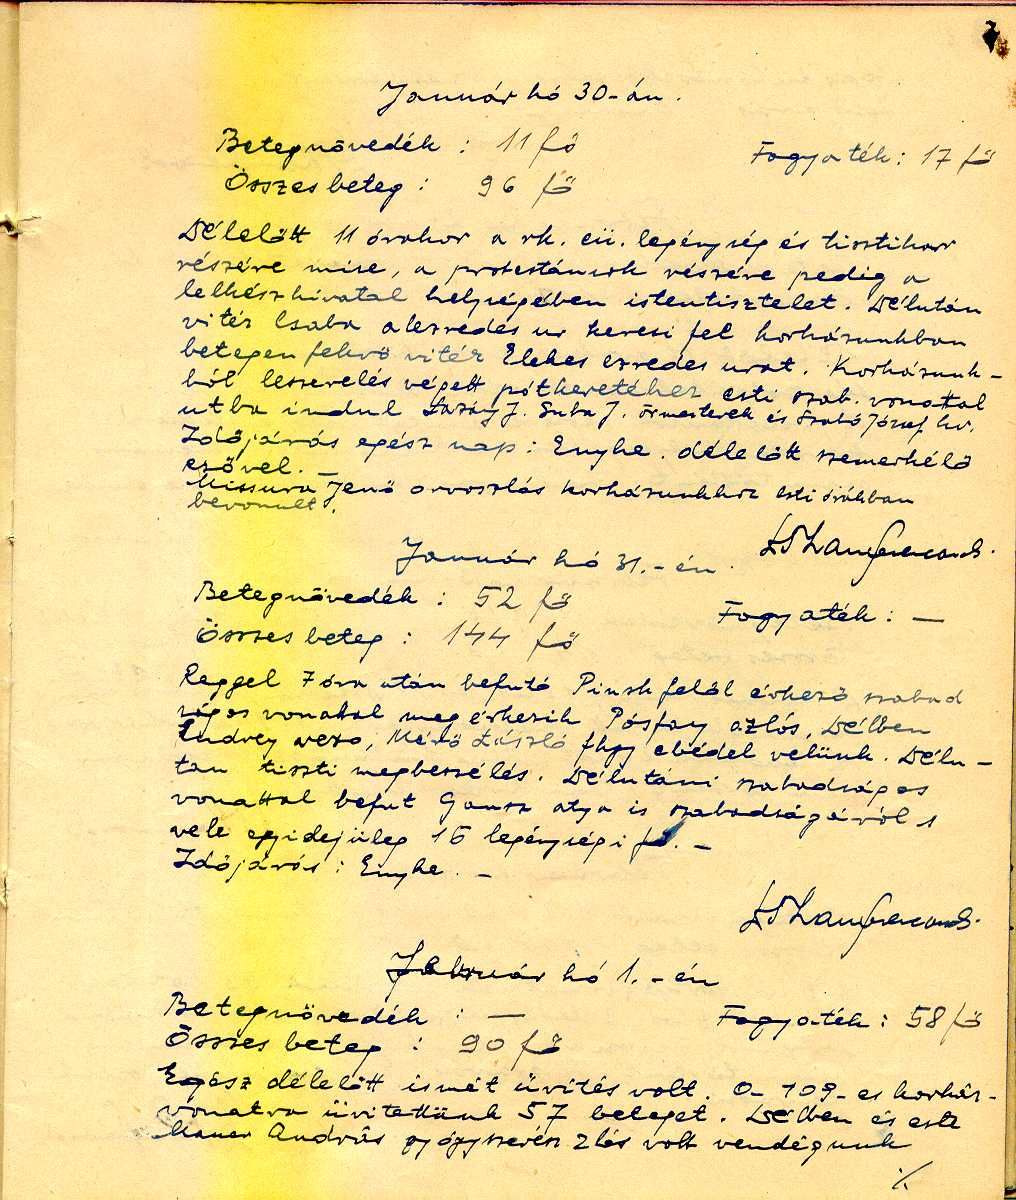 Január hó 30-án.
Betegnövedék : 11 fő Fogyaték : 17 fő
Összes beteg : 96 fő
Délelőtt 11 órakor a rk. eü. legénység és tisztikar
részére mise, a protestánsok részére pedig a
lelkészhivatal helyiségében istentisztelet. Délután
vitéz Csaba alezredes ur keresi fel kórházunkban
betegen fekvő vitéz Elekes ezredes urat. Kórházunk-
ból leszerelés végett pótkeretéhez esti szab. vonattal
utba indul J. Suba J. őrmesterek és Szabó József hv.
Időjárás egész nap : Enyhe . délelőtt szemerkélő
esővel. —
Missura Jenő orvoszlós kórházunkhoz esti órákban
bevonult.
Január hó 31.-én.
Betegnövedék : 52 fő Fogyaték : —
Összes beteg : 144 fő
Reggel 7 óra után befutó Pinsk felöl érkező szabad
ságos vonattal megérkezik Pósfay azlós, Délben
Endrey vezo, Mérő László fhgy ebédel velünk. Délu-
tan tiszti megbeszélés. Délutáni szabadságos
vonattal befut Gausz atya is szabadságáról s
vele egyidejüleg 16 legénységi fő. —
Időjárás : Enyhe. —
Február hó 1.-én
Betegnövedék : — Fogyaték : 58 fő
Összes beteg : 90 fő
Egész délelőtt ismét ürités volt. A 109-es kórház-
vonatra üritettünk 57 beteget. Délben és este
Mauer András gyógyszerész zlós volt vendégünk
./.